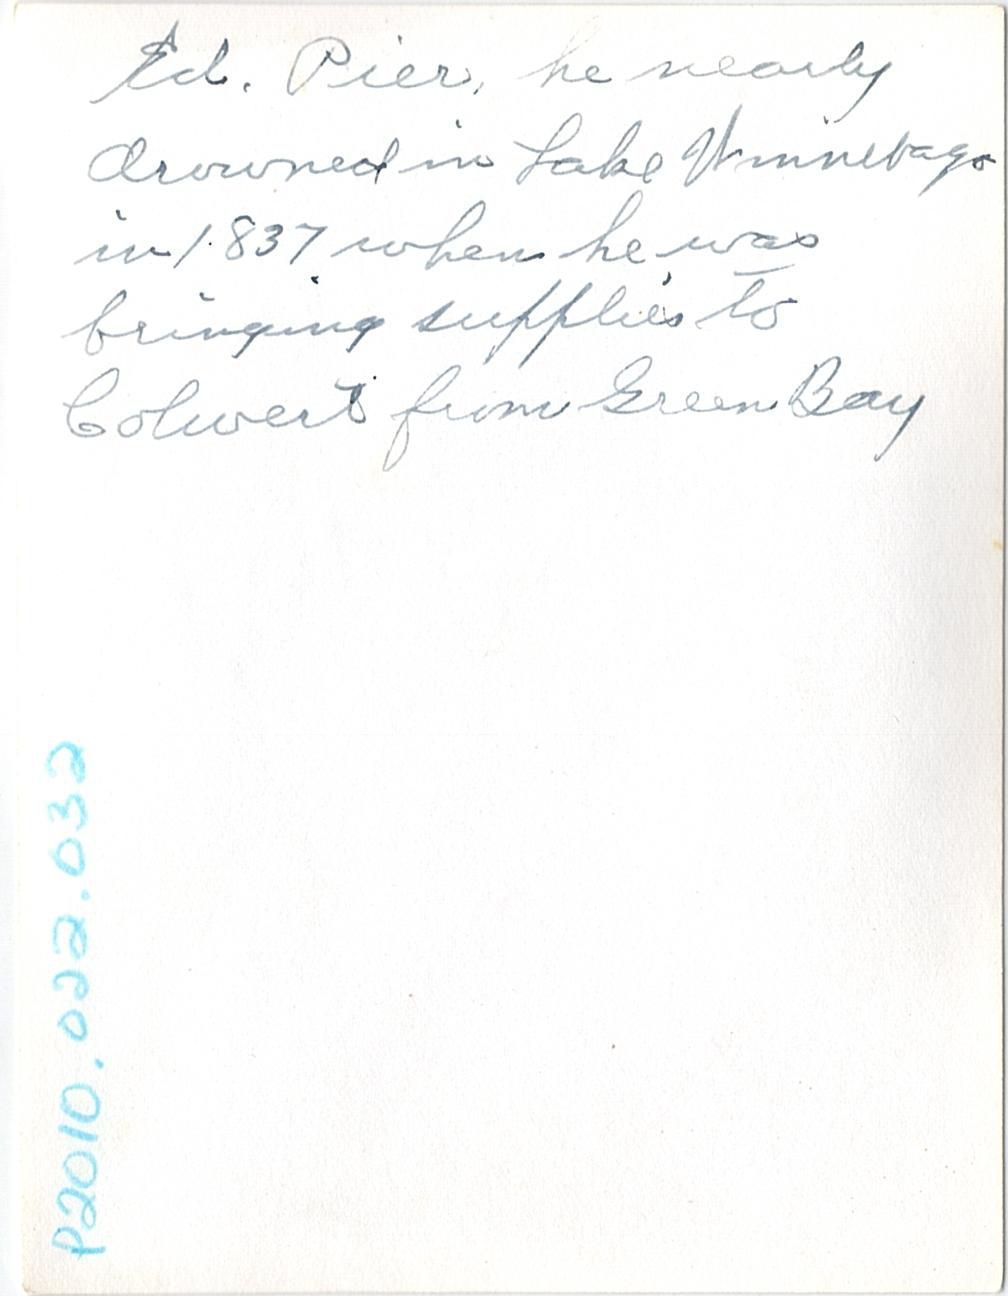 Ed. Pier, he nearly
drowned in Lake Winnebago
in 1837 when he was
bringing supplies to
from Green Bay
P2010.022.032